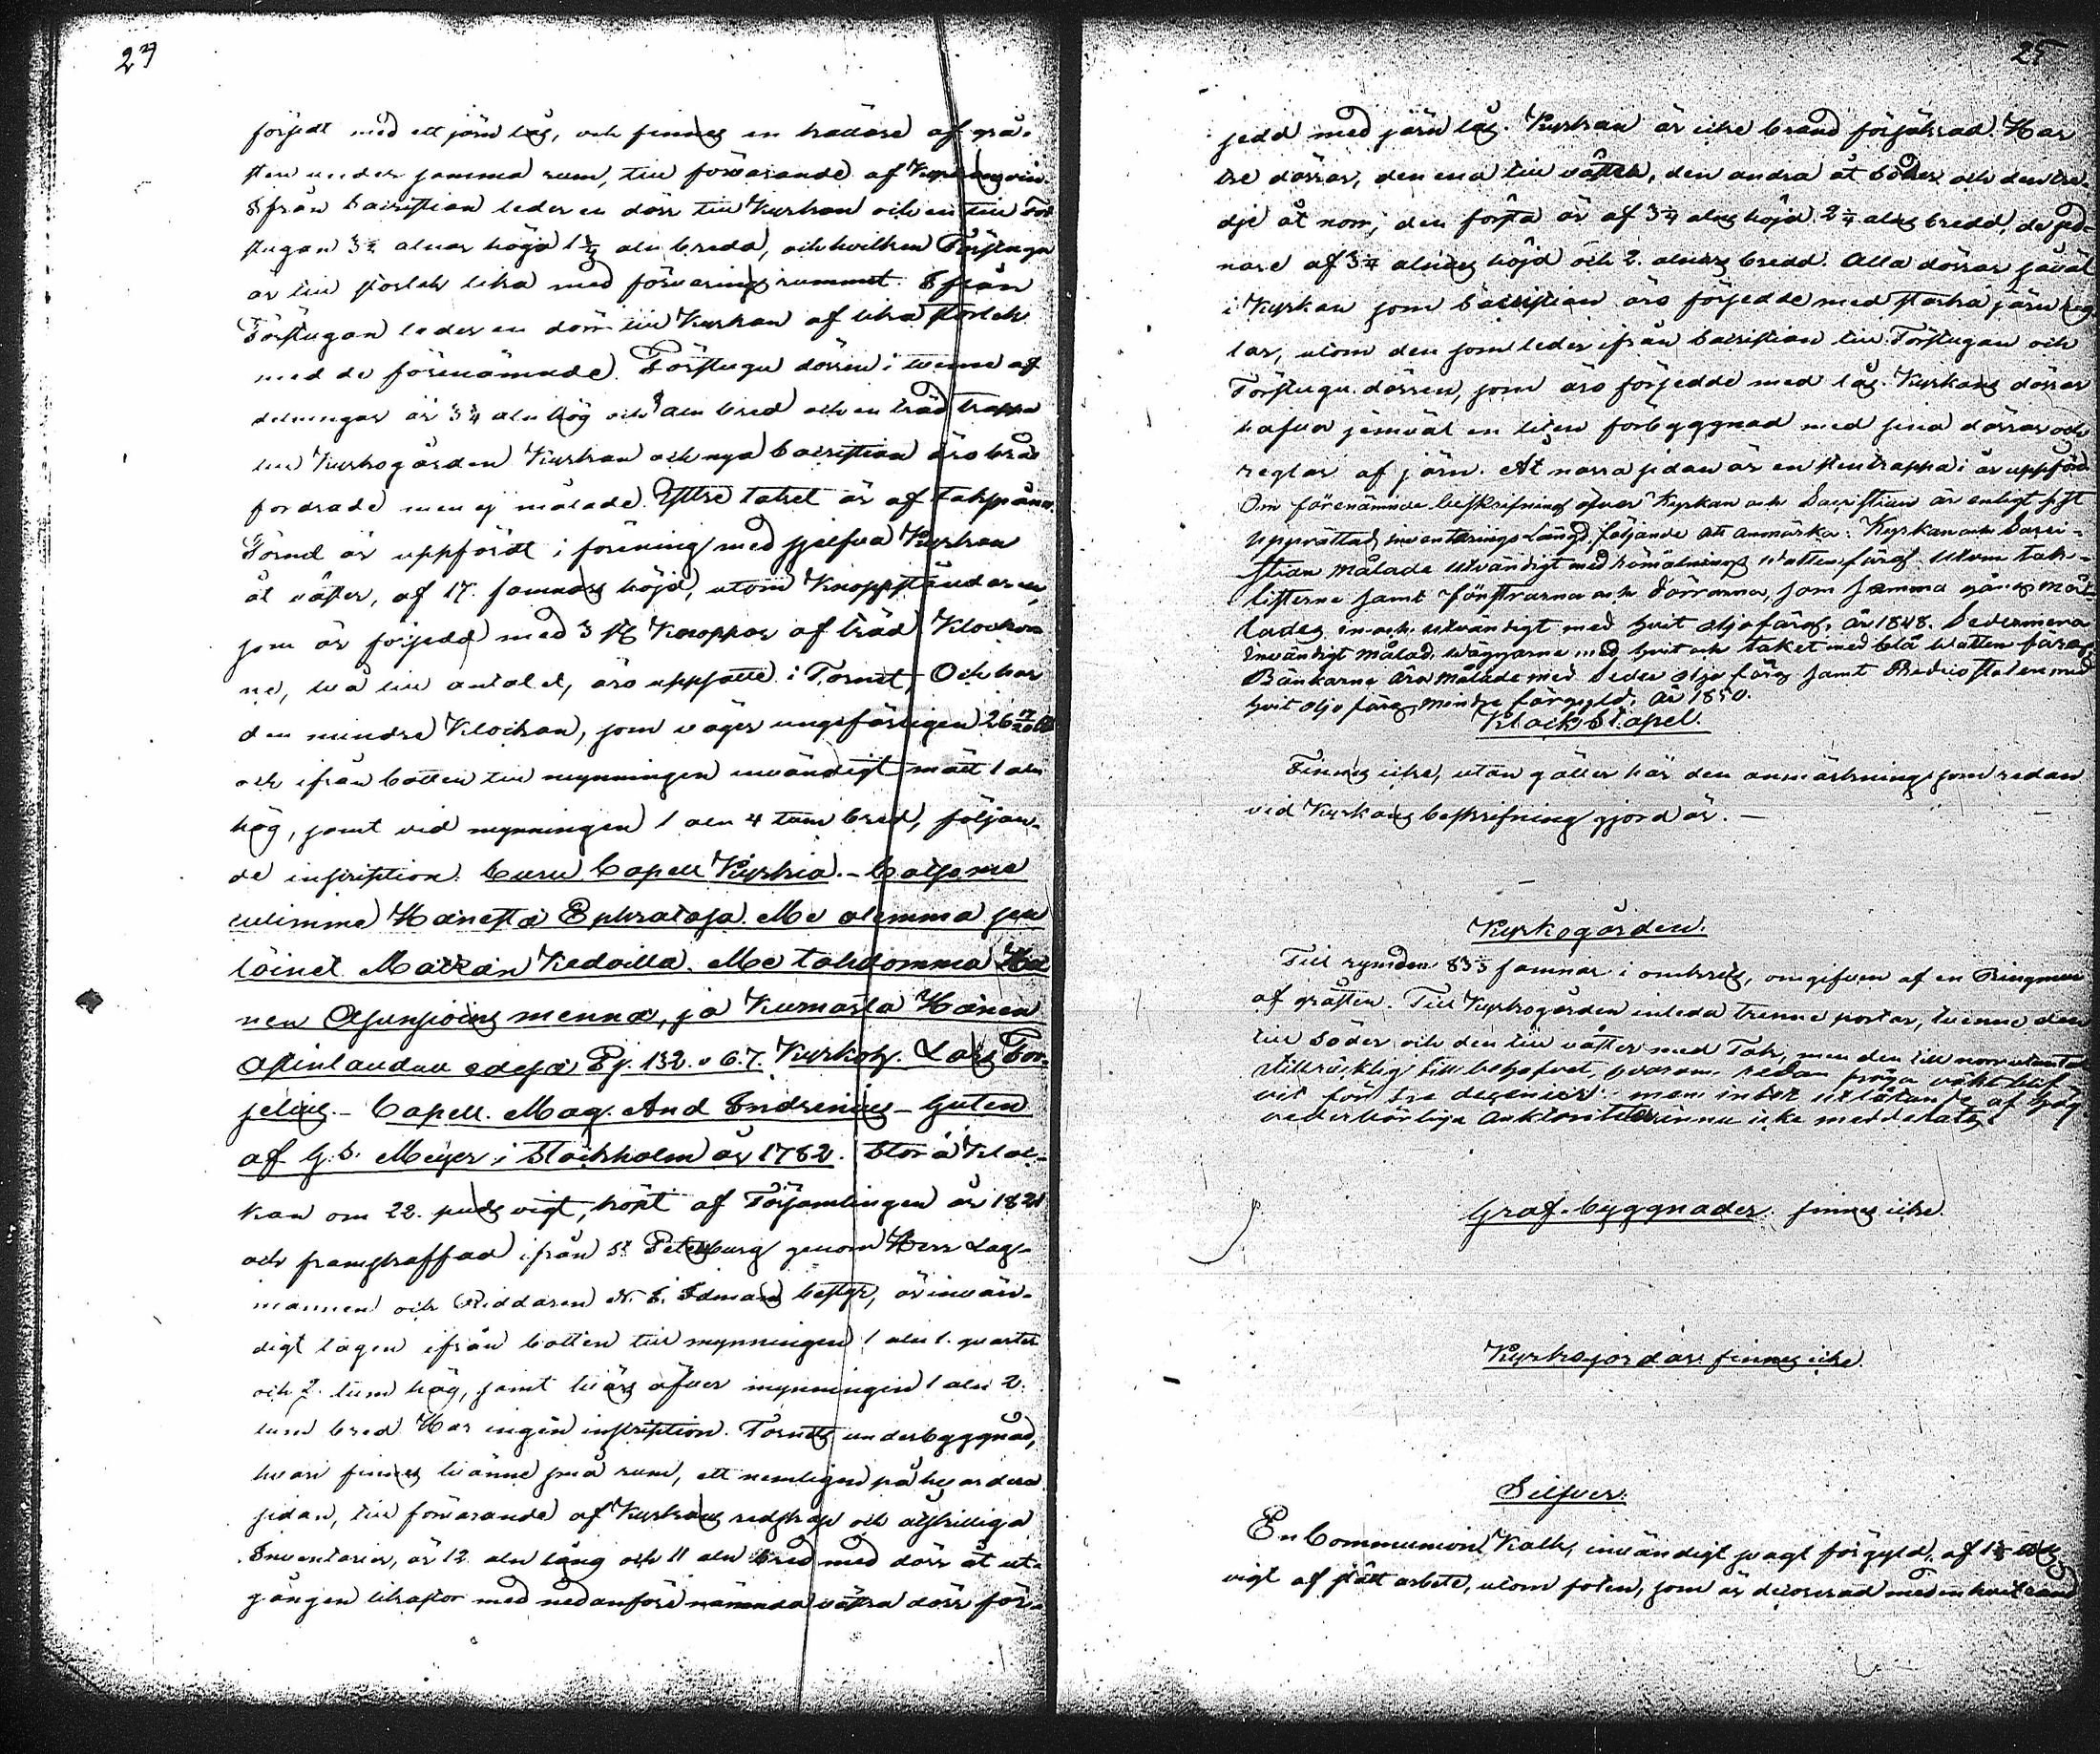 24
försedt med ett järn lås, och finnes en kallare af grå-
sten under samma rum, till förvarande af Kyrkans vin.
Ifrån Sacristian leder en dörr till Kyrkan och en till För
stugan 3¼ alnar höga 1½ aln bredd, och hvilken Förstuga
är till storlek lika med förvarings rummet. Ifrån
Förstugan leder en dörr till Kyrkan af lika storlek
med de förenämnde. Förstugu dörren i tvenne af
delningar är 3¼ aln hög och 2 aln bred och en träd trappa
till Kyrkogården. Kyrkan och nya Sacristian äro bräd
fordrade men ej målade. Yttre taket är af takspånor.
Tornet är uppfördt i förening med sjelfva Kyrkan
åt väster, af 17. famnars höjd, utom Knoppständaren,
som är försedd med 3 st Knoppar af träd. Klockor
ne, två till antalet, äro uppsatte i Tornet, Och har
den mindre Klockan, som väger ungefärligen 26
och ifrån botten till mynningen invändigt mätt 1 aln
hög, samt vid mynningen 1 aln 4 tum bred, följan-
de inscription. Curu Capell Kyrkia. - Catso me
culimma Hänestä Ephratasa. Me olemma sen
löinet Metzän Kedoilla. Me tahdomma Hä
nen Asunsioins mennä, ja Kumarta Hänen
Astinlaudan edesä Ps. 132. v 6.7. Kyrkoh. Lars For-
selius. - Capell. Mag. And Indrenius - Guten
af G. S. Meijer i Stockholm år 1782. Stora Kloc-
kan om 22. puds vigt, köpt af Församlingen år 1821
och framskaffad ifrån St Petersburg genom Herr Lag-
mannen och Riddaren N. E. Idmans bestyr, är invän-
digt tagen ifrån botten till mynningen 1 aln 1. quarter
och 2. tum hög, samt tvärs öfver mynningen 1 aln 2.
tum bred. Har ingen inscription. Tornets underbyggnad,
hvari finnes tvänne små rum, ett nemligen på hvardera
sidan, till förvarande af Kyrkans redskap och åtskilliga
Inventarier, är 12 aln lång och 11 aln bred med dörr åt ut-
gången likastor med nedanföre nämnda västra dörr för-
25
sedd med järn lås. Kyrkan är icke brand försäkrad. Har
tre dörrar, den ena till väster, den andra åt Söder och den tre-
dje åt norr; den första är af 3¼ alns höjd 2¼ alns bredd, de sed-
nare af 3¼ alnars höjd och 2. alnars bredd. Alla dörrar såväl
i Kyrkan som Sacristian äro försedde med starka järn reg
lar, utom den som leder ifrån Sacristian till Förstugan och
Förstugu dörren, som äro försedde med lås. Kyrkans dörrar
hafva jemväl en liten förbyggnad med sina dörrar och
reglar af järn. Åt norra sidan är en stentrappa i är uppförd.
Om förenämnde beskrifning öfver Kyrkan och Sacristian är enligt sist
upprättad inventerings Längd, följande att anmärka: Kyrkan och Sacri-
stian målade utvändigt med rödmålnings Vatten färg. Utom tak-
listerne samt fönstrarna och dörrarna, som samma gång må-
lades in och utvändigt med hvit oljefärg, år 1848. Sedermera
Invändigt målad, väggarne med hvit och taket med blå Vatten färg
Bänkarne äro målade med Seder olje färg samt Predicostolen med
hvit olje färg, mindre förgyld. År 1850.
Klock Stapel.
Finnes icke, utan gäller här den anmärkning som redan
vid Kyrkans beskrifning gjord är. -
Kyrkogården.
Till rymden 83⅓ famnar i omkrets, omgifven af en Ringmur
af gråsten. Till Kyrkogården inleda trenne portar, tvenne den
till Söder och den till väster med Tak, men den till norr utan tak
tillräcklig till behofvet, hvarom redan fråga väkt blif-
vit för tre decenier men intet utlåtande af hög
vederbörliga auktoriteter ännu icke meddelats.
Graf-byggnader finnes icke.
Kyrkojordar finnes icke.
Silfver.
En Communion Kalk, invändigt svagt förgyld, af
vigt af slätt arbete, utom foten, som är decorerad med en